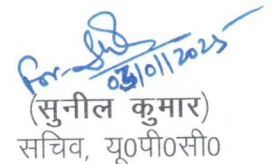 For-
03/01/2025
(सुनील कुमार)
सचिव, यू0पी0सी0